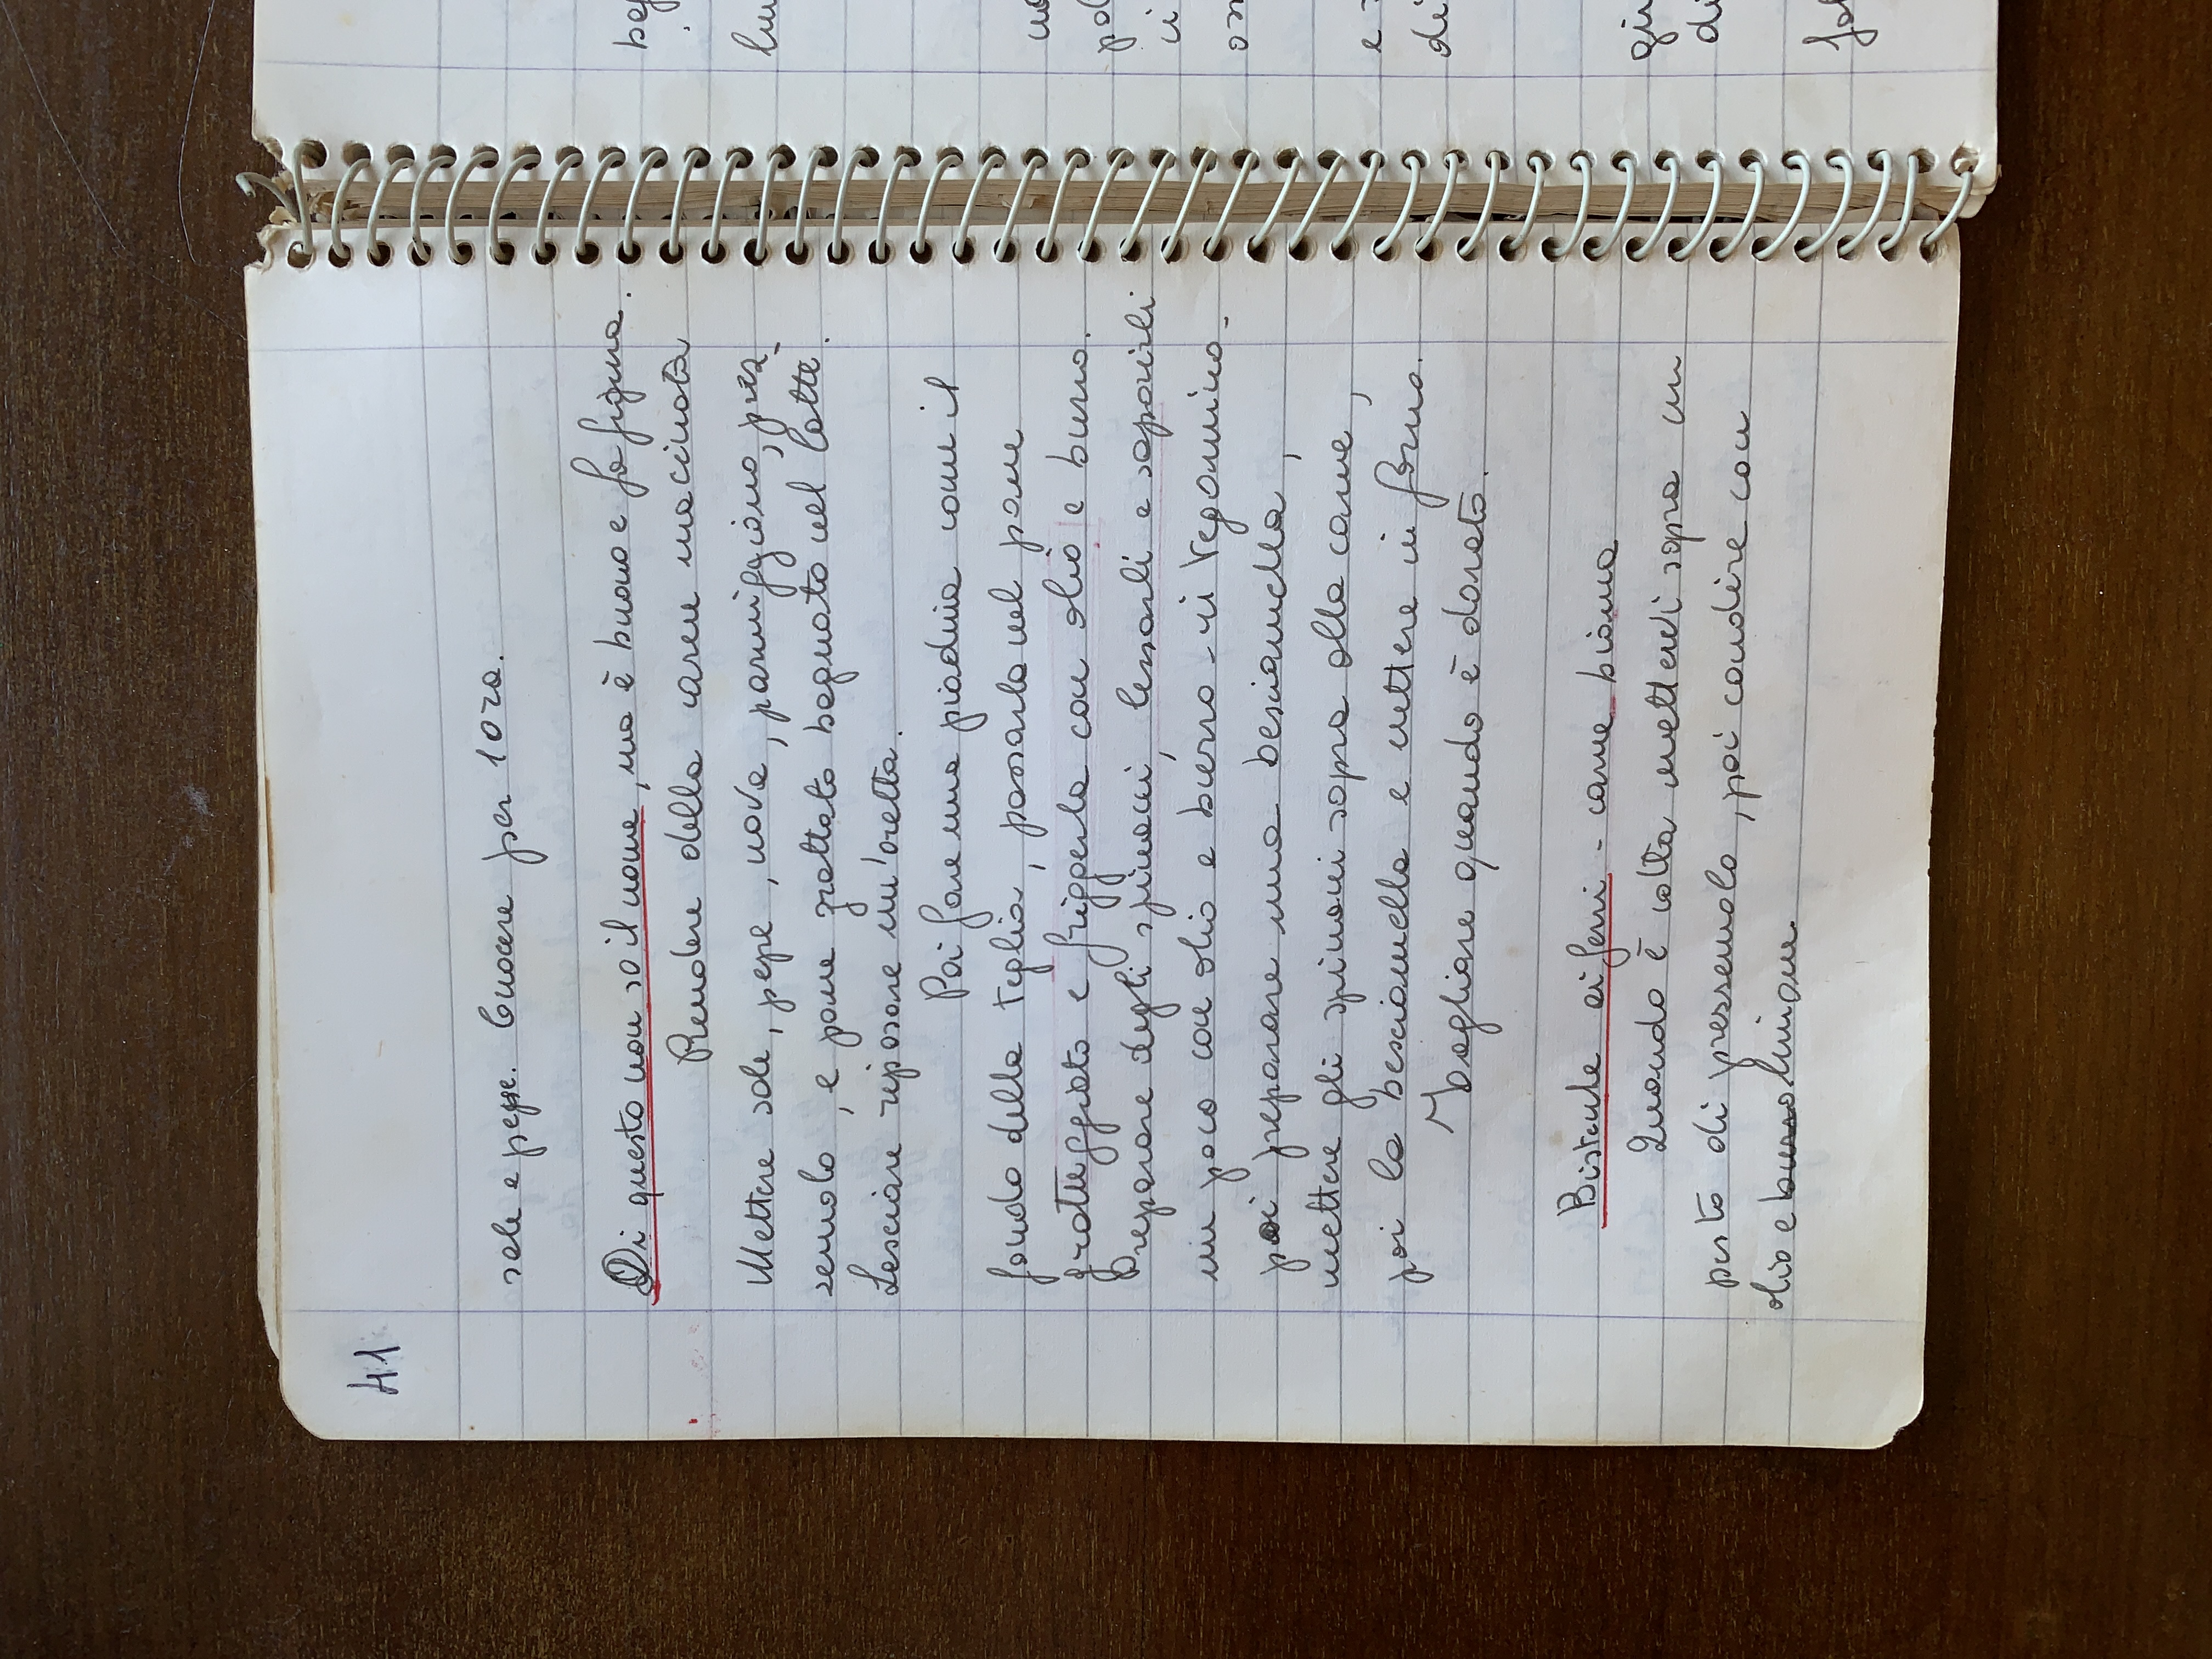 41
sale e pepe. Cuocere per 1 ora.
Di questo non so il nome, ma è buono e fa figura.
Prendere della carne macinata
Mettere sale, pepe, uova, parmiggiano, prez_
zemolo, e pane grattato bagnato nel latte.
Lasciare riposare un'oretta.
Poi fare una piadina come il
fondo della teglia, passarla nel pane
gratteggiato e friggerla con olio e burro.
Preparare degli spinaci, lessarli e saporirli
un poco con olio e burro - in tegamino -
poi preparare una besciamella,
mettere gli spinaci sopra alla carne,
poi la besciamella e mettere in forno.
Togliere quando è dorato.
Bistecche ai ferri - carne bianca
Quando è cotta metterci sopra un
pesto di prezzemolo, poi condire con
olio e burro limone.
bef
lim
no
pol
ci
e
di
gin
di